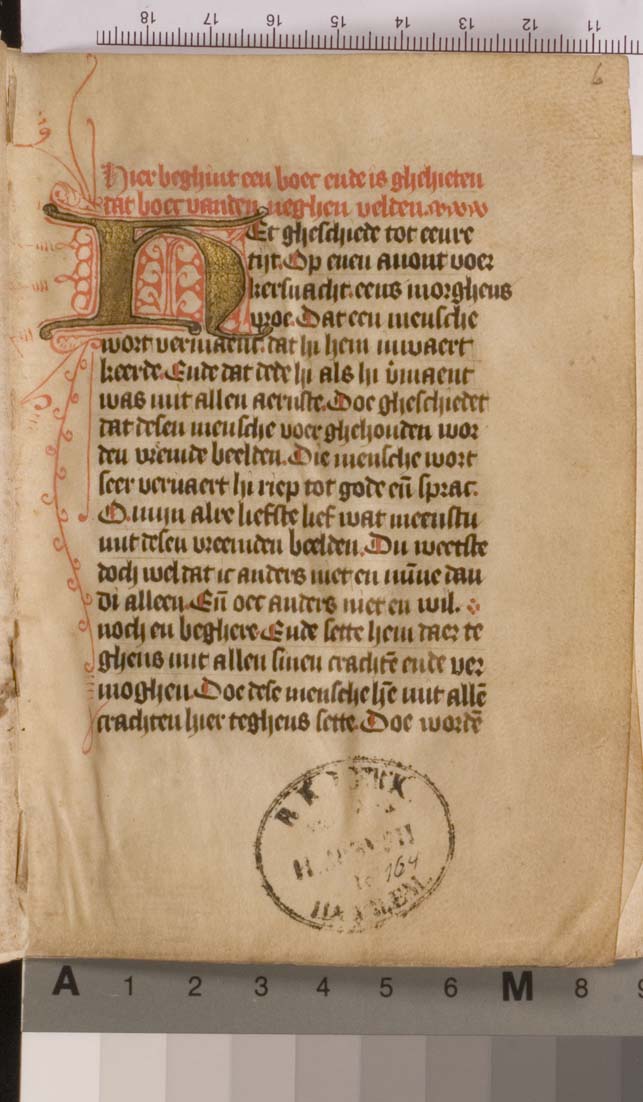 Hier beghint een boec ende is ghehieten
dat boec vanden neghen velden.
HEt gheschiede tot eenre
tijt. Op enen auont voer
kersnacht. eens morghens
vroe. Dat een mensche
wort vermaent. dat hi hem inwaert
keerde. Ende dat dede hi als hi v̉maent
was mit allen aernste. Doe gheschiedet
dat desen mensche voer ghehouden wor
den vremde beelden. Die mensche wort
seer veruaert hi riep tot gode en̄ sprac.
O. mijn alre liefste lief wat meenstu
mit desen vreemden beelden. Du weetste
doch wel dat ic anders niet en mīne dan
di alleen. En̄ oec anders niet en wil.
noch en beghere. Ende sette hem daer te
ghens mit allen sinen crachtē ende ver
moghen. Doe dese mensche hē mit allē
crachten hier teghens sette. Doe wordē
164
HAARLEM.
18 17 16 15 14 13 12 11
A 1 2 3 4 5 6 M 8 9